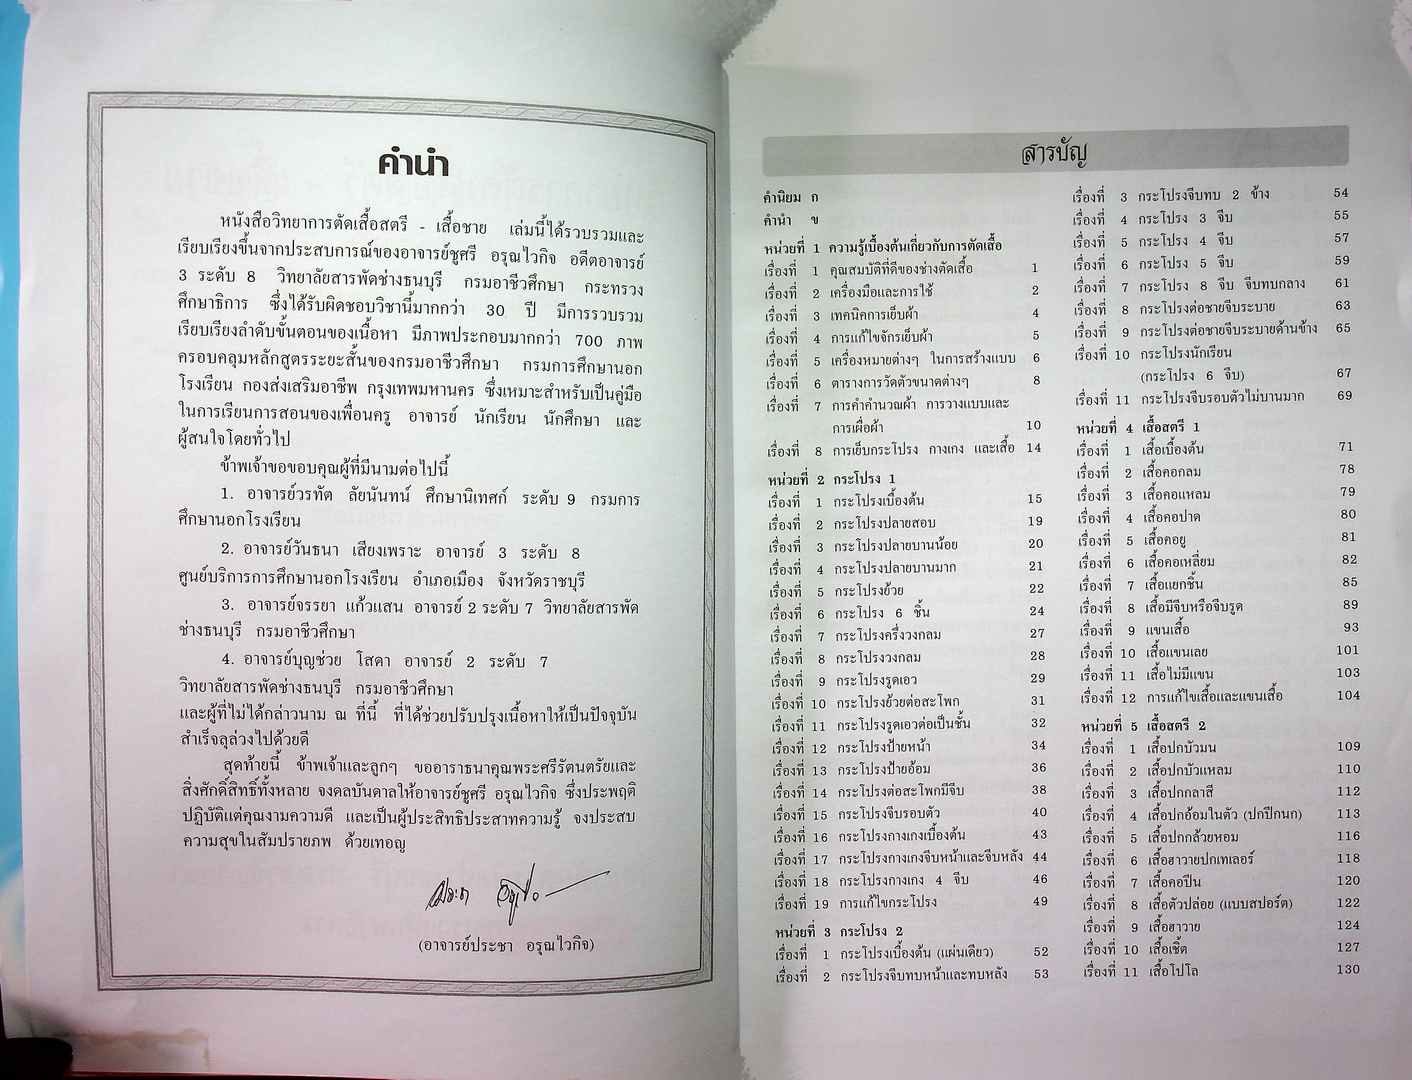 คำนำ
หนังสือวิทยาการตัดเสื้อสตรี - เสื้อชาย เล่มนี้ได้รวบรวมและ
เรียบเรียงขึ้นจากประสบการณ์ของอาจารย์ชูศรี อรุณไวกิจ อดีตอาจารย์
3 ระดับ 8 วิทยาลัยสารพัดช่างธนบุรี กรมอาชีวศึกษา กระทรวง
ศึกษาธิการ ซึ่งได้รับผิดชอบวิชานี้มากกว่า 30 ปี มีการรวบรวม
เรียบเรียงลำดับขั้นตอนของเนื้อหา มีภาพประกอบมากกว่า 700 ภาพ
ครอบคลุมหลักสูตรระยะสั้นของกรมอาชีวศึกษา กรมการศึกษานอก
โรงเรียน กองส่งเสริมอาชีพ กรุงเทพมหานคร ซึ่งเหมาะสำหรับเป็นคู่มือ
ในการเรียนการสอนของเพื่อนครู อาจารย์ นักเรียน นักศึกษา และ
ผู้สนใจโดยทั่วไป
ข้าพเจ้าขอขอบคุณผู้ที่มีนามต่อไปนี้
1. อาจารย์วรทัต ลัยนันทน์ ศึกษานิเทศก์ ระดับ 9 กรมการ
ศึกษานอกโรงเรียน
2. อาจารย์วันธนา เสียงเพราะ อาจารย์ 3 ระดับ 8
ศูนย์บริการการศึกษานอกโรงเรียน อำเภอเมือง จังหวัดราชบุรี
3. อาจารย์จรรยา แก้วแสน อาจารย์ 2 ระดับ 7 วิทยาลัยสารพัด
ช่างธนบุรี กรมอาชีวศึกษา
4. อาจารย์บุญช่วย โสดา อาจารย์ 2 ระดับ 7
วิทยาลัยสารพัดช่างธนบุรี กรมอาชีวศึกษา
และผู้ที่ไม่ได้กล่าวนาม ณ ที่นี้ ที่ได้ช่วยปรับปรุงเนื้อหาให้เป็นปัจจุบัน
สำเร็จลุล่วงไปด้วยดี
สุดท้ายนี้ ข้าพเจ้าและลูกๆ ขออาราธนาคุณพระศรีรัตนตรัยและ
สิ่งศักดิ์สิทธิ์ทั้งหลาย จงดลบันดาลให้อาจารย์ชูศรี อรุณไวกิจ ซึ่งประพฤติ
ปฏิบัติแต่คุณงามความดี และเป็นผู้ประสิทธิประสาทความรู้ จงประสบ
ความสุขในสัมปรายภพ ด้วยเทอญ
(อาจารย์ประชา อรุณไวกิจ)
สารบัญ
คำนิยม ก
คำนำ ข
หน่วยที่ 1 ความรู้เบื้องต้นเกี่ยวกับการตัดเสื้อ
เรื่องที่ 1 คุณสมบัติที่ดีของช่างตัดเสื้อ 1
เรื่องที่ 2 เครื่องมือและการใช้ 2
เรื่องที่ 3 เทคนิคการเย็บผ้า 4
เรื่องที่ 4 การแก้ไขจักรเย็บผ้า 5
เรื่องที่ 5 เครื่องหมายต่างๆ ในการสร้างแบบ 6
เรื่องที่ 6 ตารางการวัดตัวขนาดต่างๆ 8
เรื่องที่ 7 การคำคำนวณผ้า การวางแบบและ
การเผื่อผ้า 10
เรื่องที่ 8 การเย็บกระโปรง กางเกง และเสื้อ 14
หน่วยที่ 2 กระโปรง 1
เรื่องที่ 1 กระโปรงเบื้องต้น 15
เรื่องที่ 2 กระโปรงปลายสอบ 19
เรื่องที่ 3 กระโปรงปลายบานน้อย 20
เรื่องที่ 4 กระโปรงปลายบานมาก 21
เรื่องที่ 5 กระโปรงย้วย 22
เรื่องที่ 6 กระโปรง 6 ชิ้น 24
เรื่องที่ 7 กระโปรงครึ่งวงกลม 27
เรื่องที่ 8 กระโปรงวงกลม 28
เรื่องที่ 9 กระโปรงรูดเอว 29
เรื่องที่ 10 กระโปรงย้วยต่อสะโพก 31
เรื่องที่ 11 กระโปรงรูดเอวต่อเป็นชั้น 32
เรื่องที่ 12 กระโปรงป้ายหน้า 34
เรื่องที่ 13 กระโปรงป้ายอ้อม 36
เรื่องที่ 14 กระโปรงต่อสะโพกมีจีบ 38
เรื่องที่ 15 กระโปรงจีบรอบตัว 40
เรื่องที่ 16 กระโปรงกางเกงเบื้องต้น 43
เรื่องที่ 17 กระโปรงกางเกงจีบหน้าและจีบหลัง 44
เรื่องที่ 18 กระโปรงกางเกง 4 จีบ 46
เรื่องที่ 19 การแก้ไขกระโปรง 49
หน่วยที่ 3 กระโปรง 2
เรื่องที่ 1 กระโปรงเบื้องต้น (แผ่นเดียว) 52
เรื่องที่ 2 กระโปรงจีบทบหน้าและทบหลัง 53
เรื่องที่ 3 กระโปรงจีบทบ 2 ข้าง 54
เรื่องที่ 4 กระโปรง 3 จีบ 55
เรื่องที่ 5 กระโปรง 4 จีบ 57
เรื่องที่ 6 กระโปรง 5 จีบ 59
เรื่องที่ 7 กระโปรง 8 จีบ จีบทบกลาง 61
เรื่องที่ 8 กระโปรงต่อชายจีบระบาย 63
เรื่องที่ 9 กระโปรงต่อชายจีบระบายด้านข้าง 65
เรื่องที่ 10 กระโปรงนักเรียน
(กระโปรง 6 จีบ) 67
เรื่องที่ 11 กระโปรงจีบรอบตัวไม่บานมาก 69
หน่วยที่ 4 เสื้อสตรี 1
เรื่องที่ 1 เสื้อเบื้องต้น 71
เรื่องที่ 2 เสื้อคอกลม 78
เรื่องที่ 3 เสื้อคอแหลม 79
เรื่องที่ 4 เสื้อคอปาด 80
เรื่องที่ 5 เสื้อคอยู 81
เรื่องที่ 6 เสื้อคอเหลี่ยม 82
เรื่องที่ 7 เสื้อแยกชิ้น 85
เรื่องที่ 8 เสื้อมีจีบหรือจีบรูด 89
เรื่องที่ 9 แขนเสื้อ 93
เรื่องที่ 10 เสื้อแขนเลย 101
เรื่องที่ 11 เสื้อไม่มีแขน 103
เรื่องที่ 12 การแก้ไขเสื้อและแขนเสื้อ 104
หน่วยที่ 5 เสื้อสตรี 2
เรื่องที่ 1 เสื้อปกบัวมน 109
เรื่องที่ 2 เสื้อปกบัวแหลม 110
เรื่องที่ 3 เสื้อปกกลาสี 112
เรื่องที่ 4 เสื้อปกอ้อมในตัว (ปกปีกนก) 113
เรื่องที่ 5 เสื้อปกกล้วยหอม 116
เรื่องที่ 6 เสื้อฮาวายปกเทเลอร์ 118
เรื่องที่ 7 เสื้อคอปีน 120
เรื่องที่ 8 เสื้อตัวปล่อย (แบบสปอร์ต) 122
เรื่องที่ 9 เสื้อฮาวาย 124
เรื่องที่ 10 เสื้อเชิ้ต 127
เรื่องที่ 11 เสื้อโปโล 130